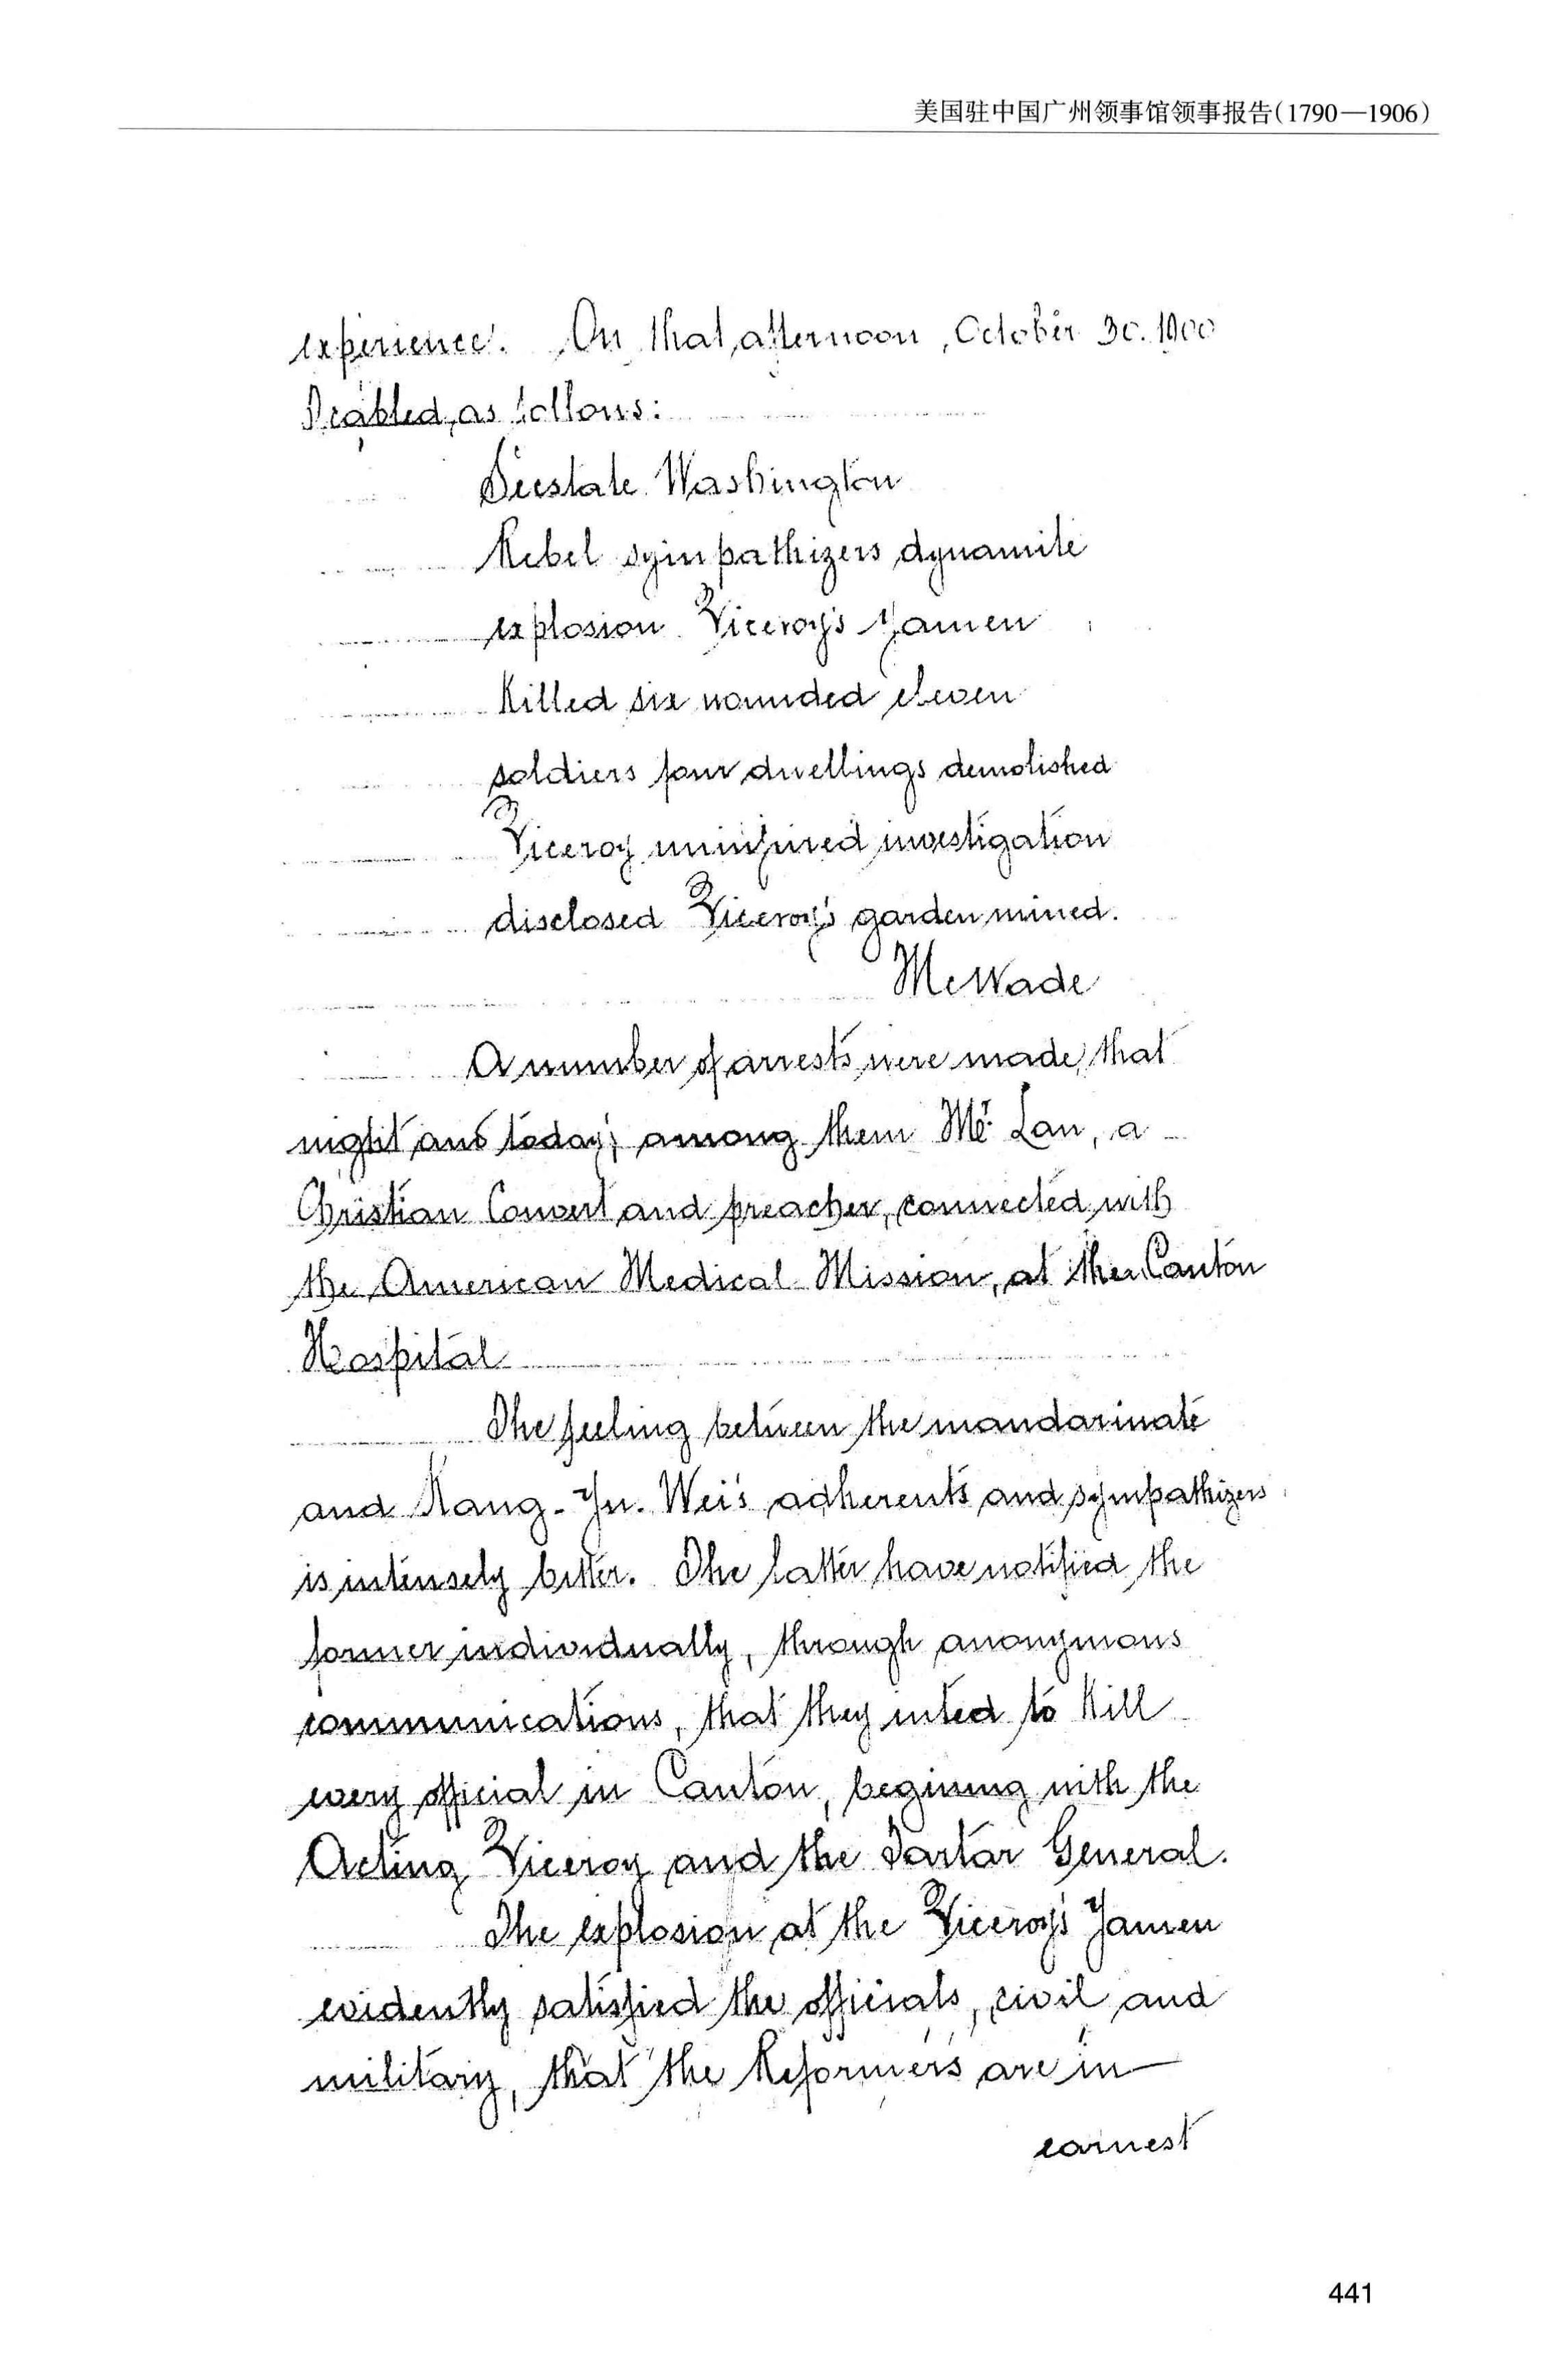 美国驻中国广州领事馆领事报告(1790—1906)
experience. On that afternoon, October 30. 1900
I cabled, as follows:
Secstate Washington
Rebel sympathizers dynamite
explosion Viceroy's Yamen
Killed six wounded eleven
soldiers four dwellings demolished
Viceroy uninjured investigation
disclosed Viceroy's garden mined.
McWade
A number of arrests were made, that
night and today; among them Mr. Lan, a
Christian Convert and preacher, connected with
the American Medical Mission, at the Canton
Hospital
The feeling between the mandarinate
and Kang-Yu. Wei's adherents and sympathizers
is intensely bitter. The latter have notified the
former individually, through anonymous
communications, that they inted to Kill
every official in Canton, begining with the
Acting Viceroy and the Tartar General.
The explosion at the Viceroy's Yamen
evidently satisfied the officials, civil and
military, that the Reformers are in—
earnest
441